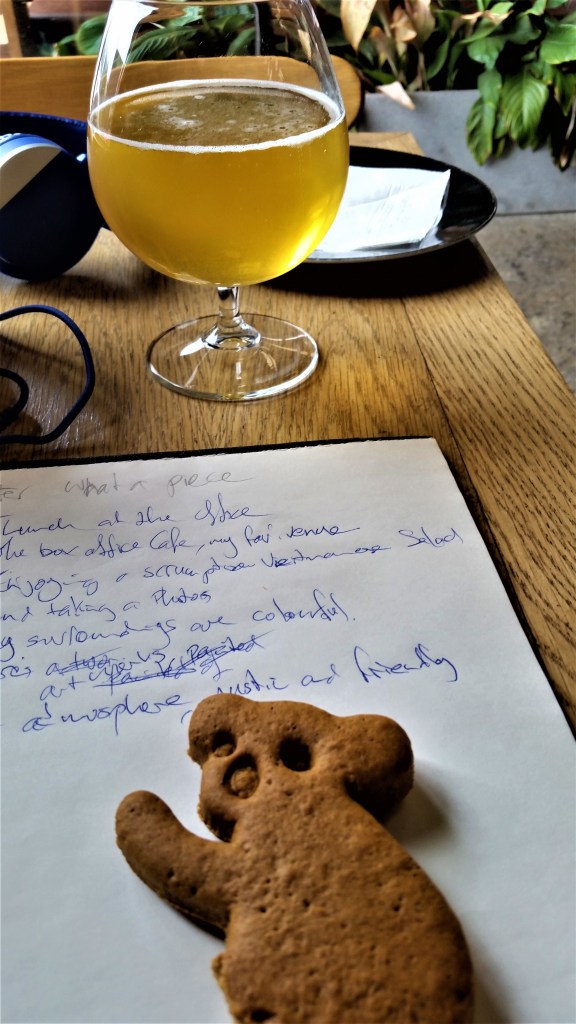 what a piece
Lunch at the office
the box office Cafe, my fav. venue
Enjoying a scrumptious Vietnamese Salad
and taking a Photos
surroundings are colourful.
art
atmosphere rustic and friendly